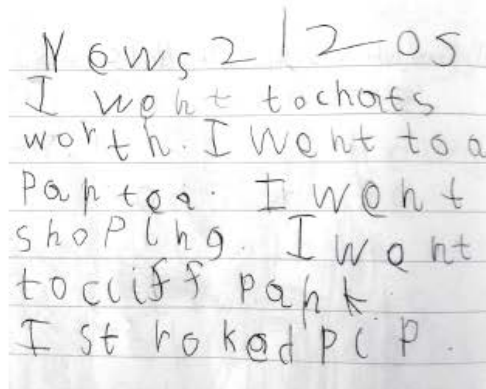 News 2 12 05
I went tochats
worth. I went to a
Pantoa. I went
shoping. I went
tocliff pank.
I stroked pip.